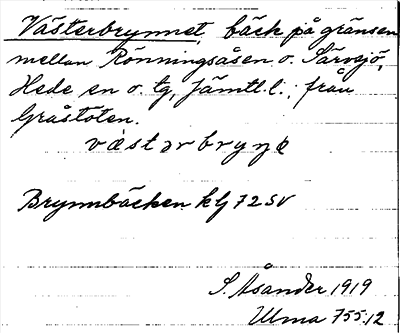 Västerbrynnet, bäck på gränsen
mellan Rönningsåsen o. Särvsjö,
Hede sn o. tg, Jämtl. l., från
Gråstöten.
västərbrynə
Brynnbäcken klj 72 SV
S. Åsander 1919
Ulma 755:12